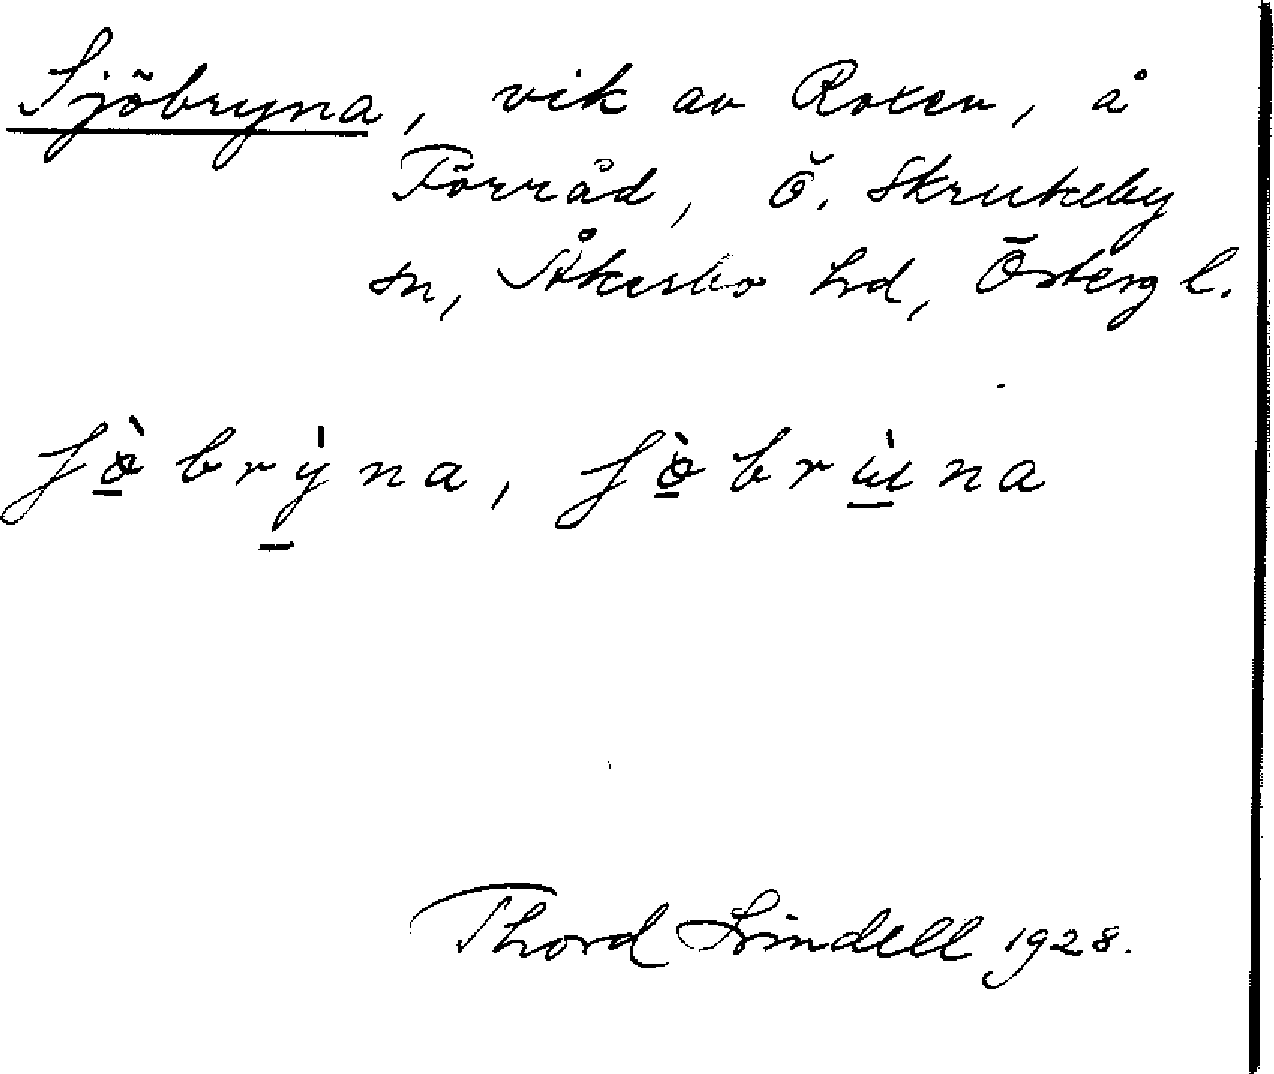 Sjöbryna, vik av Roxen, å
Förråd, Ö. Skrukeby
sn, Åkerbo hd, Östergl.
ʃø̠̀brỳ̠na, ʃø̠̀brɯ̠̀na
Thord Lindell 1928.